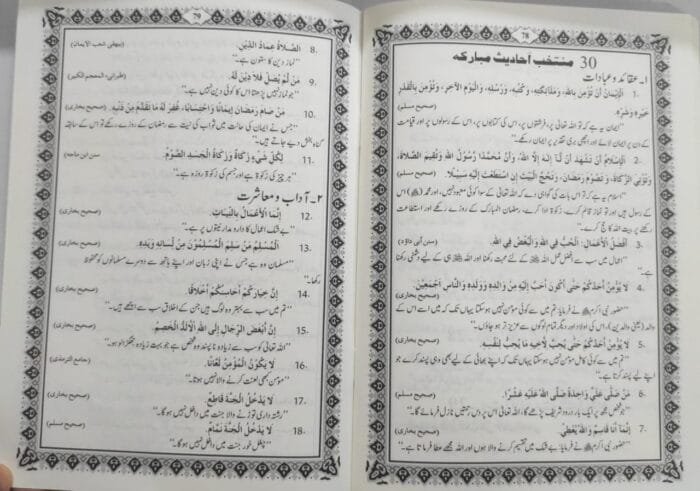 78
30 منتخب احادیث مبارکہ
۱۔ عقائد و عبادات
1. الْإِيْمَانُ أَنْ تُؤْمِنَ بِاللهِ، وَمَلَائِكَتِهِ، وَكُتُبِهِ، وَرُسُلِهِ، وَالْيَوْمِ الْآخِرِ، وَتُؤْمِنَ بِالْقَدْرِ
خَيْرِهِ وَشَرِّهِ. (صحیح مسلم)
’’ایمان یہ ہے کہ تو اللہ تعالیٰ پر، فرشتوں پر، اس کی کتابوں پر، اس کے رسولوں پر اور قیامت
کے دن پر ایمان لائے اور اچھی بری تقدیر پر ایمان رکھے۔‘‘
2. الْإِسْلَامُ أَنْ تَشْهَدَ أَنْ لَا إِلٰهَ إِلَّا اللهُ، وَأَنَّ مُحَمَّدًا رَسُوْلُ اللهِ وَتُقِيْمَ الصَّلَاةَ،
وَتُؤْتِيَ الزَّكَاةَ، وَتَصُوْمَ رَمَضَانَ، وَتَحُجَّ الْبَيْتَ إِنِ اسْتَطَعْتَ إِلَيْهِ سَبِيْلًا. (صحیح مسلم)
’’اسلام یہ ہے کہ تو اس بات کی گواہی دے کہ اللہ تعالیٰ کے سوا کوئی معبود نہیں، اور محمد (ﷺ) اس
کے رسول ہیں اور تو نماز قائم کرے، زکوٰۃ ادا کرے، رمضان المبارک کے روزے رکھے اور استطاعت
رکھنے پر بیت اللہ کا حج کرے۔‘‘
3. أَفْضَلُ الْأَعْمَالِ: الْحُبُّ فِي اللهِ وَالْبُغْضُ فِي اللهِ. (سنن أبی داؤد)
’’اعمال میں سب سے افضل عمل اللہ کے لئے محبت رکھنا اور اللہ ہی کے لیے دشمنی رکھنا
ہے۔‘‘
4. لَا يُؤْمِنُ أَحَدُكُمْ حَتّٰى أَكُوْنَ أَحَبَّ إِلَيْهِ مِنْ وَالِدِهِ وَوَلَدِهِ وَالنَّاسِ أَجْمَعِيْنَ.
’’حضور نبی اکرم ﷺ نے فرمایا: تم میں سے کوئی مومن نہیں ہو سکتا یہاں تک کہ میں اسے اس کے (صحیح بخاری)
والد (یعنی والدین)، اس کی اولاد اور دیگر تمام لوگوں سے عزیز تر ہو جاؤں۔‘‘
5. لَا يُؤْمِنُ أَحَدُكُمْ حَتّٰى يُحِبَّ لِأَخِيْهِ مَا يُحِبُّ لِنَفْسِهِ. (صحیح بخاری)
’’تم میں سے کوئی کامل مومن نہیں ہو سکتا یہاں تک کہ اپنے بھائی کے لیے بھی وہی پسند کرے جو
اپنے لیے پسند کرتا ہے۔‘‘
6. مَنْ صَلّٰى عَلَيَّ وَاحِدَةً صَلَّى اللهُ عَلَيْهِ عَشْرًا. (صحیح مسلم)
’’جو شخص مجھ پر ایک بار درود شریف پڑھے گا، اللہ تعالیٰ اس پر دس رحمتیں نازل فرمائے گا۔‘‘
7. إِنَّمَا أَنَا قَاسِمٌ وَاللهُ يُعْطِيْ. (صحیح بخاری)
’’حضور نبی اکرم ﷺ نے فرمایا: بے شک میں تقسیم کرنے والا ہوں اور اللہ مجھے عطا فرماتا ہے۔‘‘
79
8. الصَّلَاةُ عِمَادُ الدِّيْنِ. (بیہقی شعب الایمان)
’’نماز دین کا ستون ہے۔‘‘
9. مَنْ لَمْ يُصَلِّ فَلَا دِيْنَ لَهُ. (طبرانی، المعجم الکبیر)
’’جو نماز نہیں پڑھتا اس کا کوئی دین نہیں ہے۔‘‘
10. مَنْ صَامَ رَمَضَانَ إِيْمَانًا وَاحْتِسَابًا، غُفِرَ لَهُ مَا تَقَدَّمَ مِنْ ذَنْبِهِ. (صحیح بخاری)
’’جس نے ایمان کی حالت میں ثواب کی نیت سے رمضان کے روزے رکھے تو اس کے سابقہ
گناہ بخش دیے جاتے ہیں۔‘‘
11. لِكُلِّ شَيْءٍ زَكَاةٌ وَزَكَاةُ الْجَسَدِ الصَّوْمُ. (سنن ابن ماجہ)
’’ہر چیز کی زکوٰۃ ہے اور جسم کی زکوٰۃ روزہ ہے۔‘‘
۲۔ آداب و معاشرت
12. إِنَّمَا الْأَعْمَالُ بِالنِّيَّاتِ. (صحیح بخاری)
’’بے شک اعمال کا دار و مدار نیتوں پر ہے۔‘‘
13. الْمُسْلِمُ مَنْ سَلِمَ الْمُسْلِمُوْنَ مِنْ لِسَانِهِ وَيَدِهِ. (صحیح بخاری)
’’مسلمان وہ ہے جس نے اپنی زبان اور اپنے ہاتھ سے دوسرے مسلمانوں کو محفوظ
رکھا۔‘‘
14. إِنَّ خِيَارَكُمْ أَحَاسِنُكُمْ أَخْلَاقًا. (صحیح بخاری)
’’تم میں سب سے بہتر وہ لوگ ہیں جن کے اخلاق سب سے اچھے ہیں۔‘‘
15. إِنَّ أَبْغَضَ الرِّجَالِ إِلَى اللهِ الْأَلَدُّ الْخَصِمُ. (صحیح بخاری)
’’اللہ تعالیٰ کو سب سے زیادہ ناپسند وہ شخص ہے جو بہت زیادہ جھگڑالو ہو۔‘‘
16. لَا يَكُوْنُ الْمُؤْمِنُ لَعَّانًا. (جامع الترمذی)
’’مومن کبھی لعنت کرنے والا نہیں ہوتا۔‘‘
17. لَا يَدْخُلُ الْجَنَّةَ قَاطِعٌ. (صحیح بخاری)
’’رشتہ داری توڑنے والا جنت میں داخل نہیں ہو گا۔‘‘
18. لَا يَدْخُلُ الْجَنَّةَ نَمَّامٌ. (صحیح مسلم)
’’چغل خور جنت میں داخل نہیں ہو گا۔‘‘